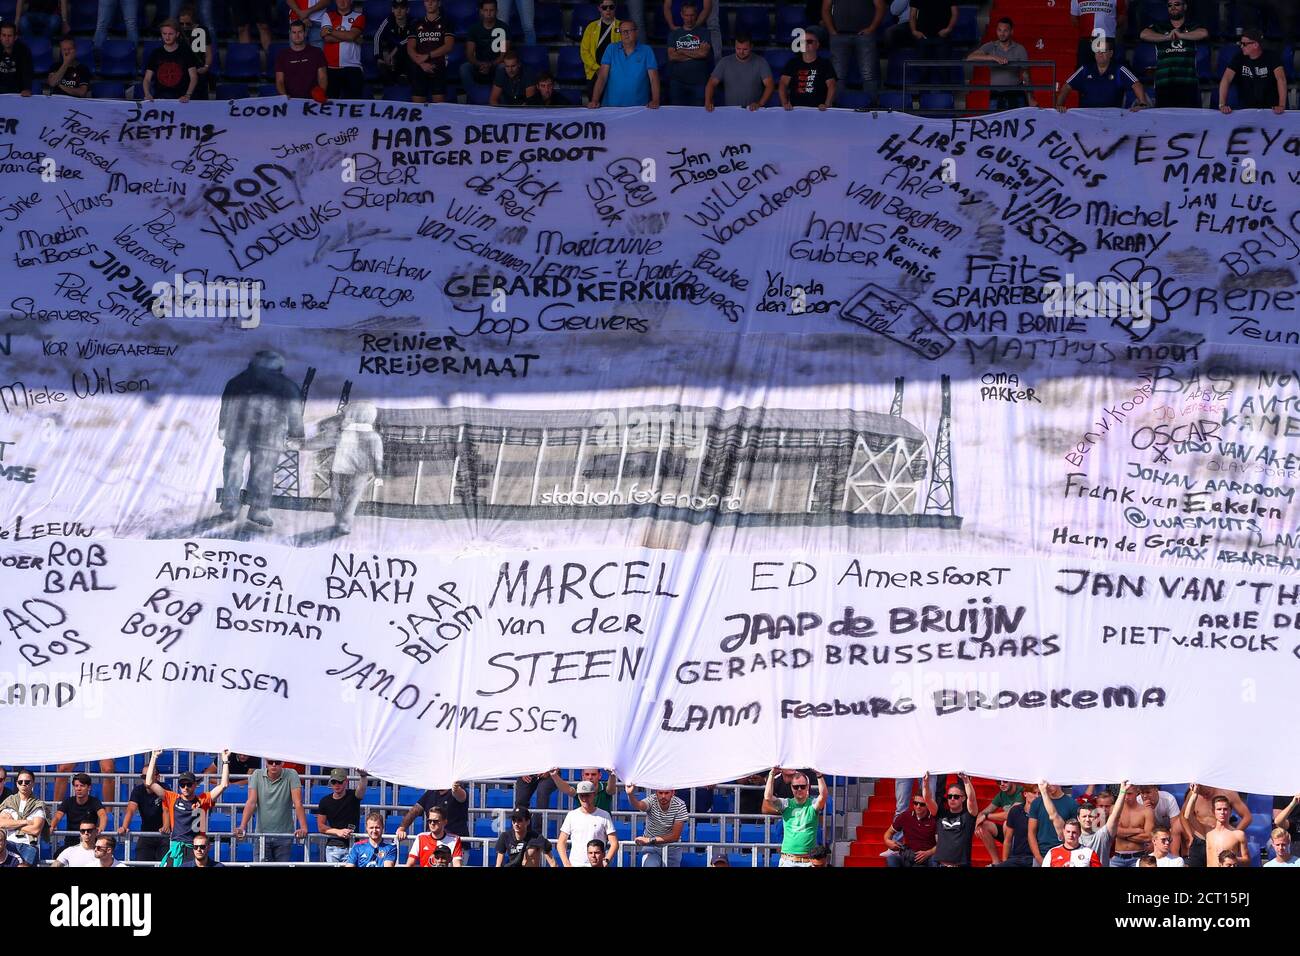 JAN KETTING
LOON KETELAAR
Frenk v.d Rassel
Koos de BIE
Johan Cruijff
HANS DEUTEKOM
RUTGER DE GROOT
Jaap van Gelder
Martin
Peter Stephan
Dick de Regt
Gerry Slok
Jan van Diggele
Willem Voordrager
LARS GUSTAV HOFF
FRANS FUCHS
WESLEY
MARION v
HANS KRAAY
ARIE VAN BERGHEM
TINO VISSER
Michel KRAAY
JAN LUC FLATON
Hans
RON
YVONNE
LODEWIJKS
Martin ten Bosch
Peter
JIP JUR
Piet Smit
Wim van Schouwen
Marianne
Lems-'t hart
HANS Gubber
Patrick Kennis
Jonathan Paragr
GERARD KERKUM
Pauke Meyers
Yolanda den Boer
Errol
FEITS
SPARREBOOM
OMA BONIE
BOB
Rene
Teun
STRAVERS
Joop Geuvers
KOR WIJNGAARDEN
Reinier
KREIJERMAAT
MATTHYS mout
Mieke Wilson
OMA PAKKER
BAS NOV
Ben v. Kooten
JO
OSCAR
UDO VAN AKE
stadion feyenoord
JOHAN AARDOOM
Frank van Eekelen
@WASMUTS
Harm de Graaf
MAX ABARBA
de LEEUW
ROB BAL
Remco
ANDRINGA
Willem Bosman
ROB BON
NAIM BAKH
JAAP BLOM
MARCEL van der STEEN
ED Amersfoort
JAN VAN 'T H
JAAP de BRUIJN
ARIE DE
PIET v.d. KOLK
AD BOS
GERARD BRUSSELAARS
LAND
HENK DINISSEN
JAN. DINNESSEN
LAMM FEEBURG BROEKEMA
alamy
Image ID: 2CT15PJ
www.alamy.com